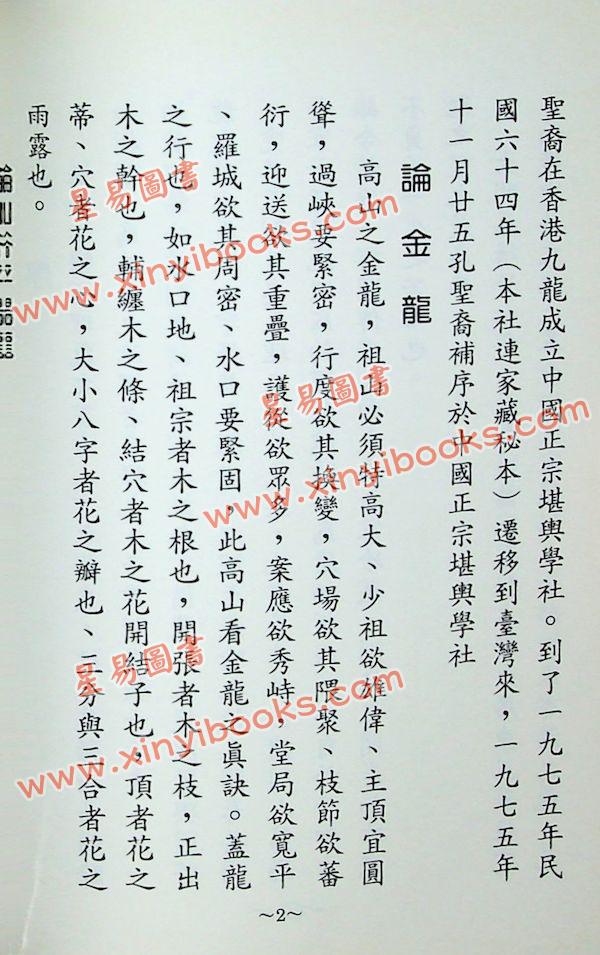 聖裔在香港九龍成立中國正宗堪輿學社。到了一九七五年民
國六十四年（本社連家藏秘本）遷移到臺灣來，一九七五年
十一月廿五孔聖裔補序於中國正宗堪輿學社
論金龍
高山之金龍，祖山必須特高大、少祖欲雄偉、主頂宜圓
聳，過峽要緊密，行度欲其換變，穴場欲其隈聚、枝節欲蕃
衍，迎送欲其重疊，護從欲眾多，案應欲秀峙，堂局欲寬平
、羅城欲其周密、水口要緊固，此高山看金龍之眞訣。蓋龍
之行也，如水口地、祖宗者木之根也，開張者木之枝，正出
木之幹也，輔纏木之條、結穴者木之花開結子也，頂者花之
蒂、穴者花之心，大小八字者花之瓣也、三分與三合者花之
雨露也。
~2~
星易圖書
www.xinyibooks.com
星易圖書
www.xinyibooks.com
星易圖書
www.xinyibooks.com